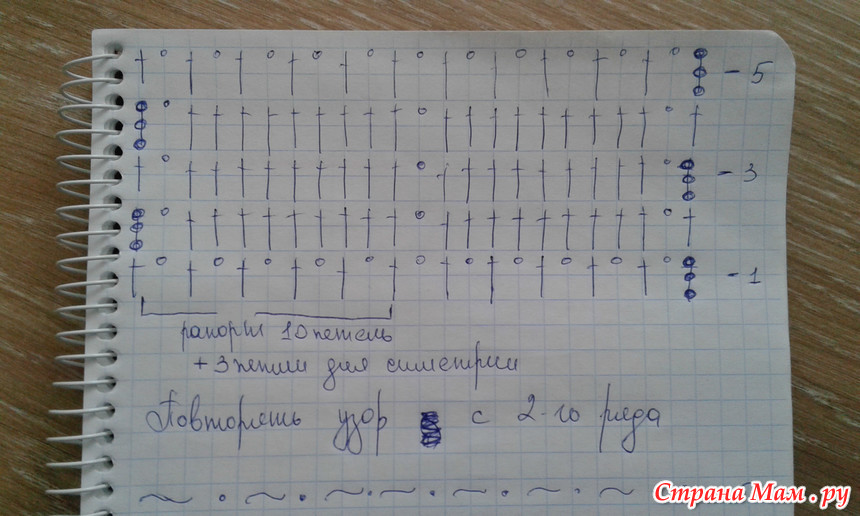 - 5
- 3
- 1
рапорт 10 петель
+ 3 петли для симетрии
Повторять узор с 2-го ряда
Страна Мам.ру